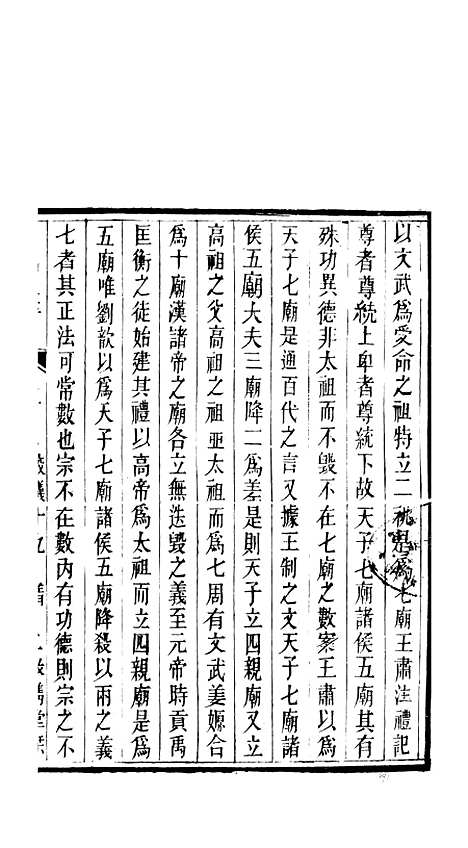 以文武爲受命之祖特立二祧是爲七廟王肅注禮記
尊者尊統上卑者尊統下故天子七廟諸侯五廟其有
殊功異德非太祖而不毀不在七廟之數案王肅以爲
天子七廟是通百代之言又據王制之文天子七廟諸
侯五廟大夫三廟降二爲差是則天子立四親廟又立
高祖之父高祖之祖並太祖而爲七周有文武姜嫄合
爲十廟漢諸帝之廟各立無迭毀之義至元帝時貢禹
匡衡之徒始建其禮以高帝爲太祖而立四親廟是爲
五廟唯劉歆以爲天子七廟諸侯五廟降殺以兩之義
七者其正法可常數也宗不在數內有功德則宗之不
議十九